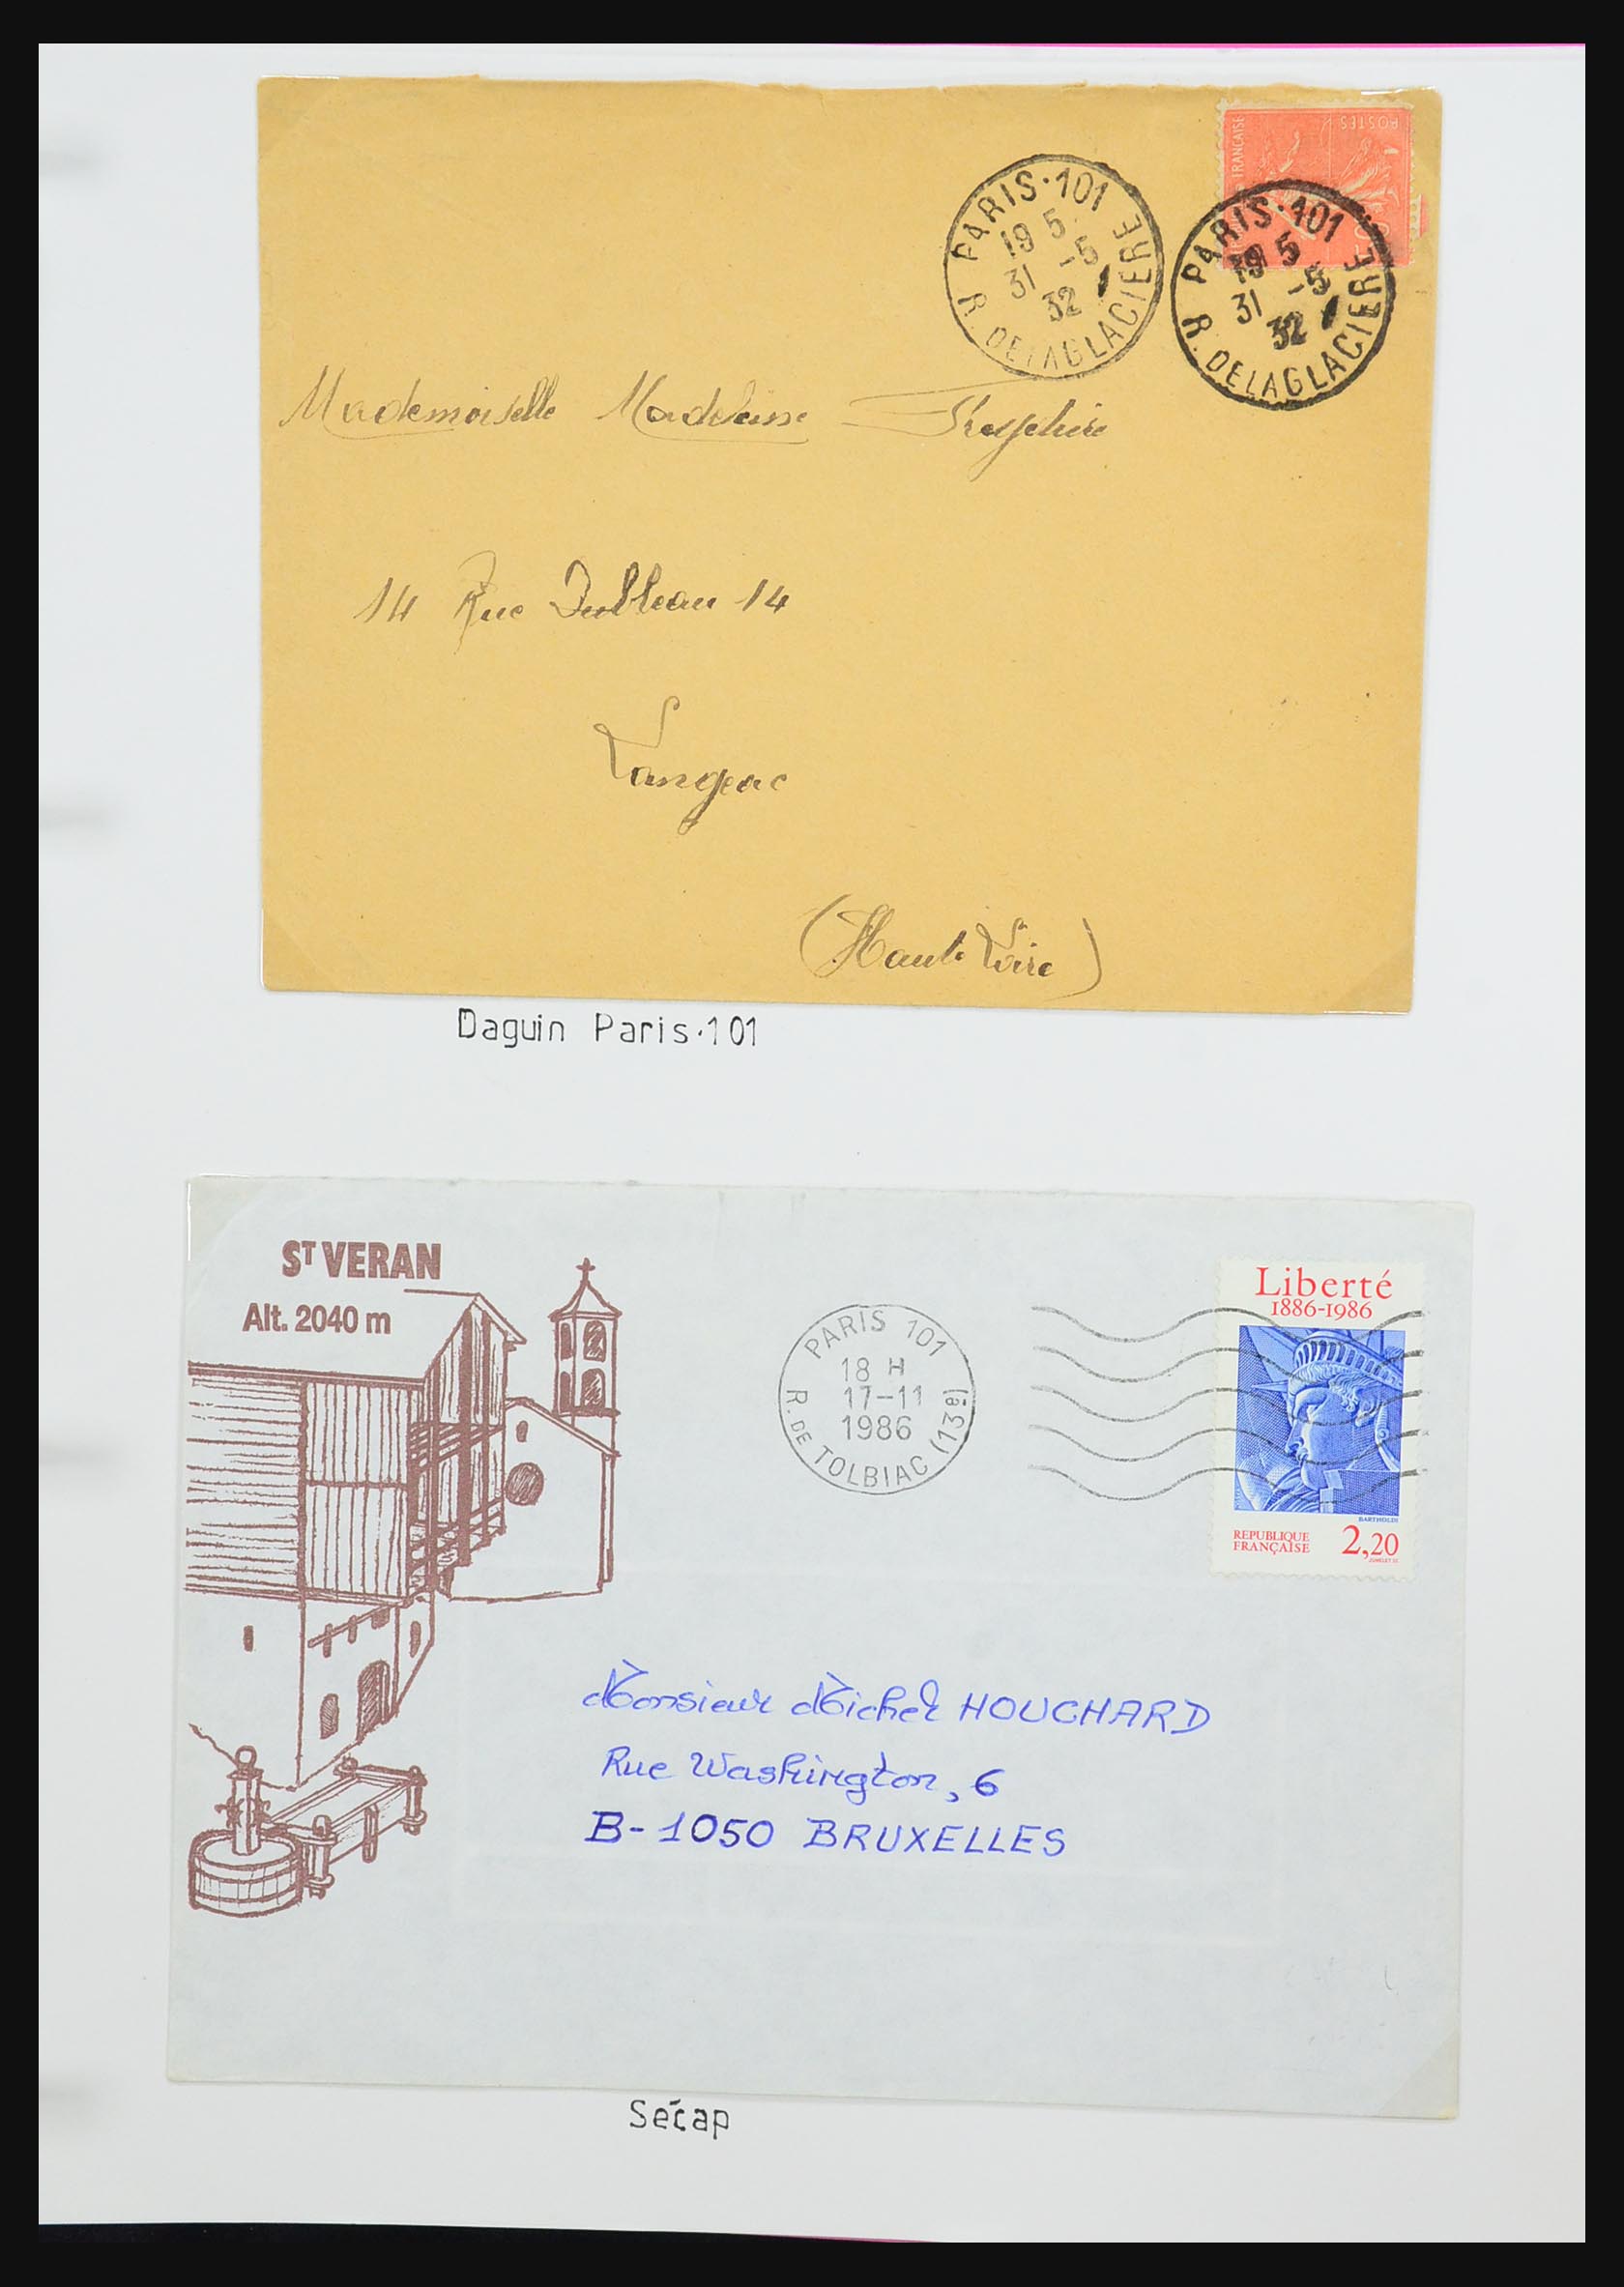 POSTES
FRANÇAISE
PARIS·101
19 5
31 -5
32
R. DE LA GLACIERE
PARIS·101
19 5
31 -5
32
R. DE LA GLACIERE
Mademoiselle Madeleine
14 Rue 14
Langeac
(Haute Loire)
Daguin Paris·101
ST VERAN
Alt. 2040 m
PARIS 101
18 H
17-11
1986
R. DE TOLBIAC (13è)
Liberté
1886-1986
BARTHOLDI
REPUBLIQUE
FRANÇAISE 2,20
Monsieur Michel HOUCHARD
Rue Washington, 6
B-1050 BRUXELLES
Sécap